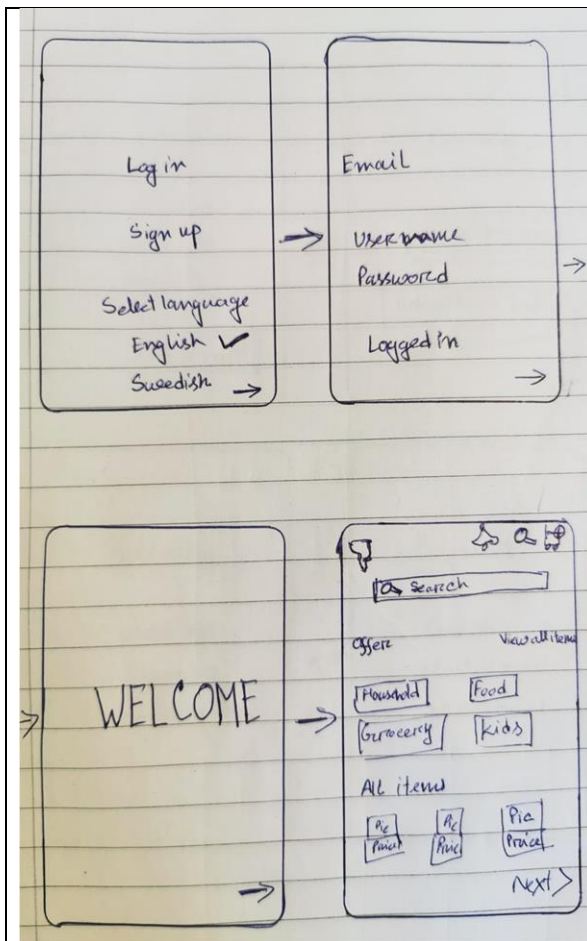 Log in
Sign up
Select language
English
Swedish
Email
Username
Password
Logged in
WELCOME
Search
Offer View all items
Household Food
Grocery Kids
All items
Pic Pic Pic
Price Price Price
Next